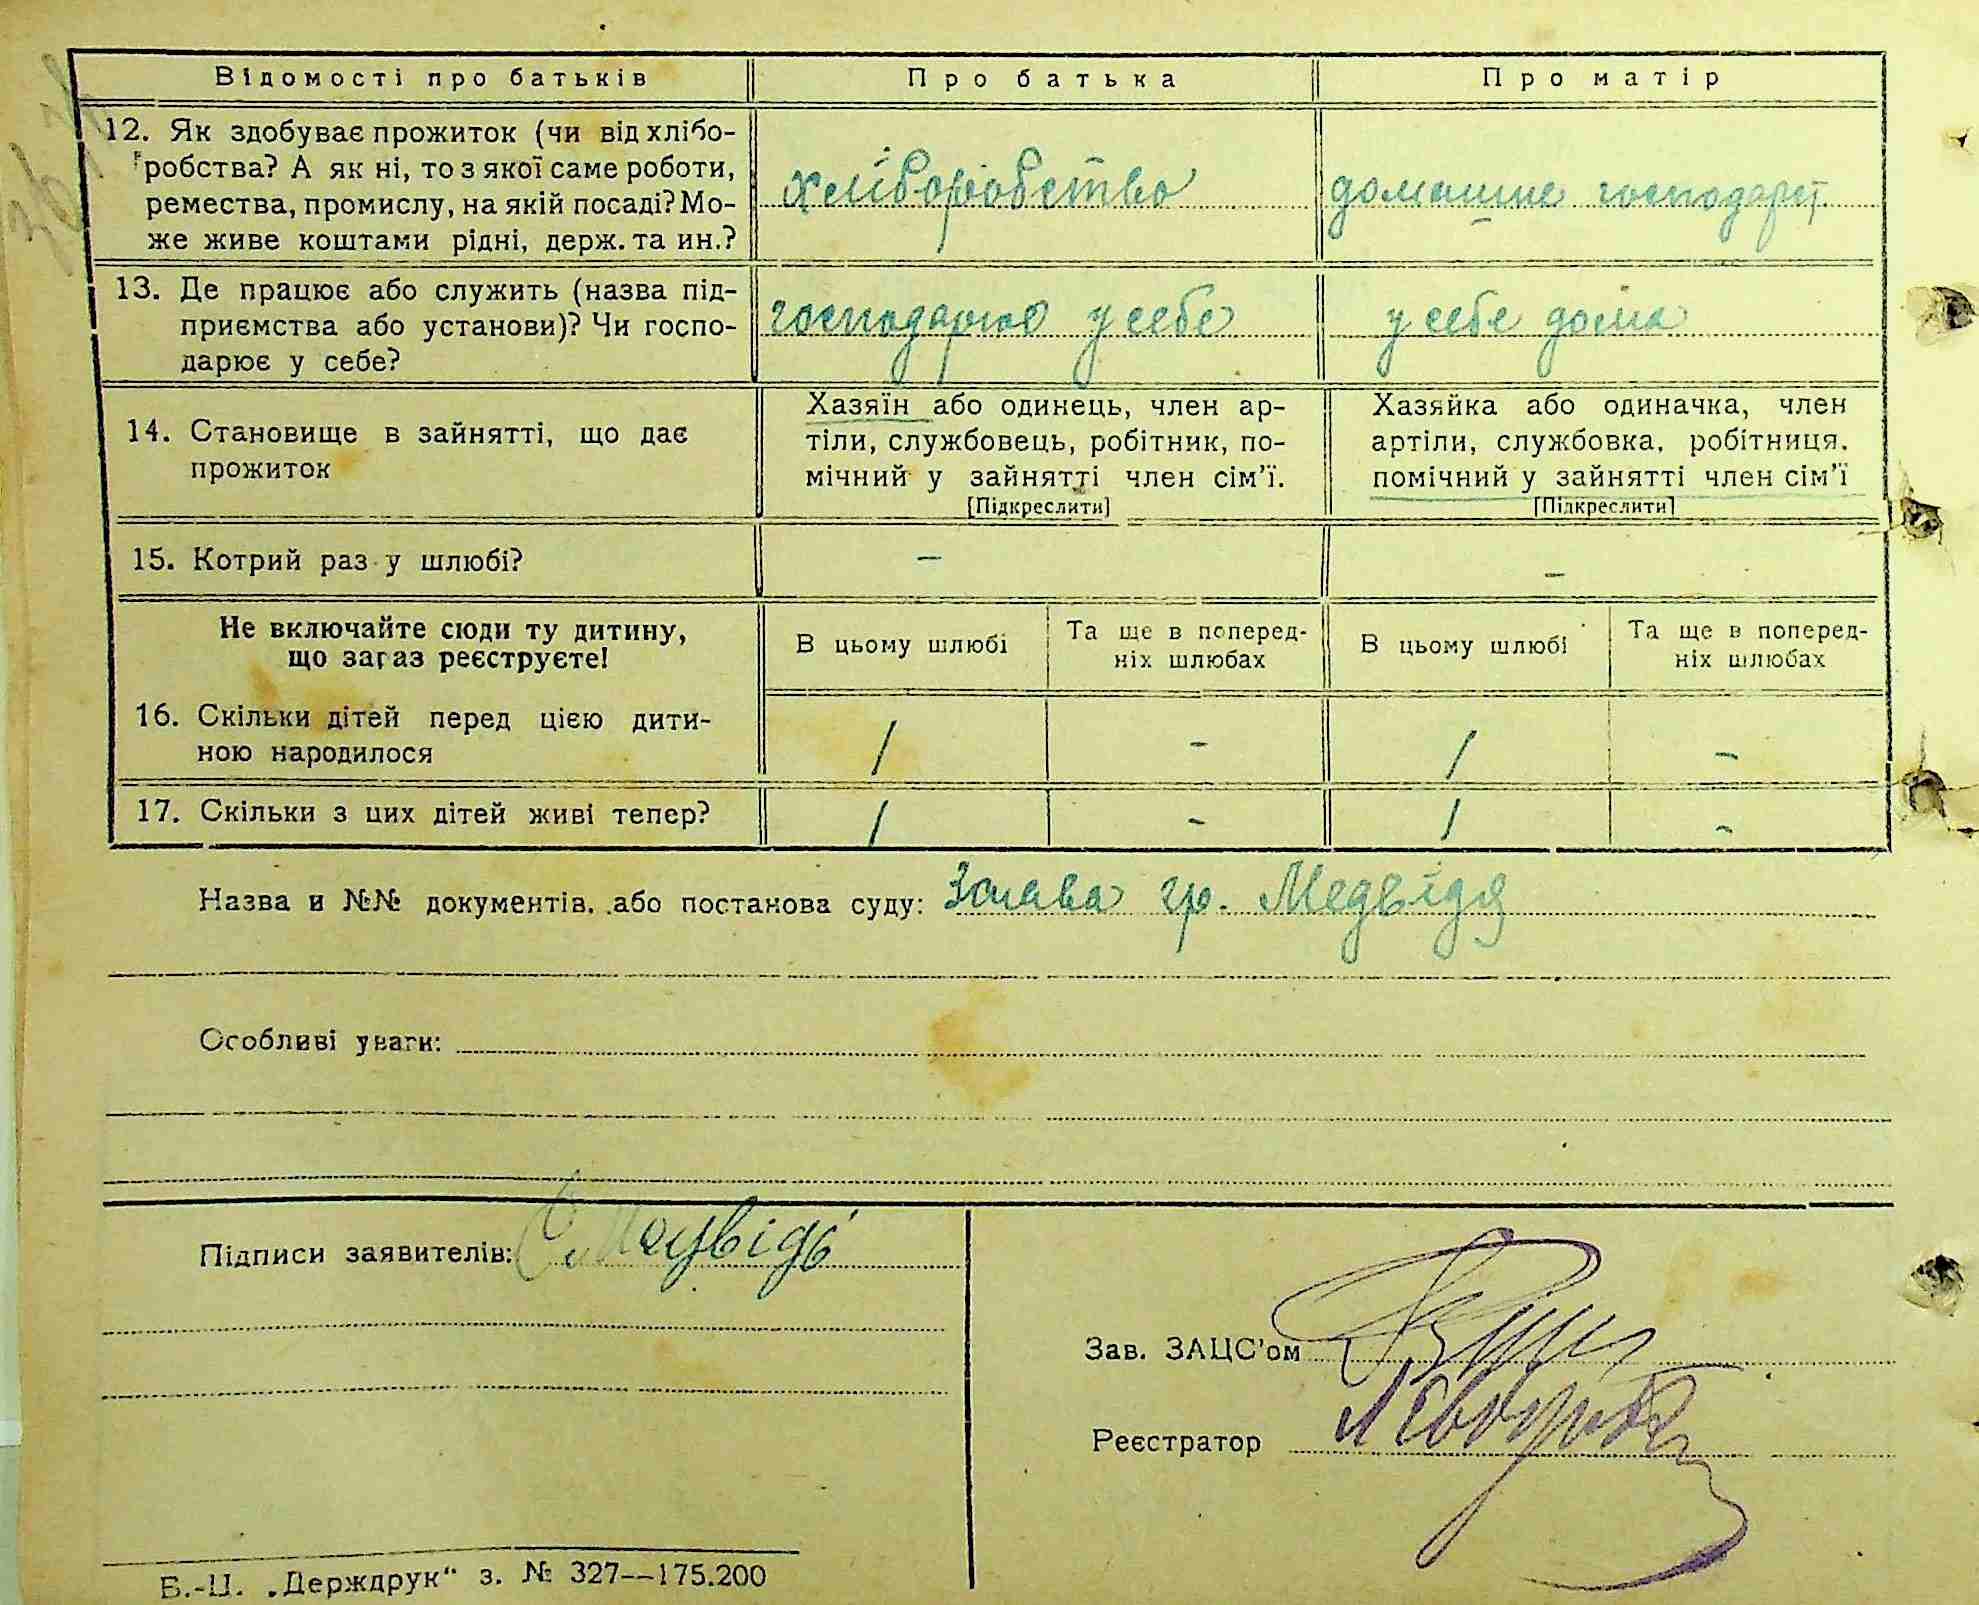 Відомості про батьків Про батька Про матір
12. Як здобуває прожиток (чи від хлібо-
робства? А як ні, то з якої саме роботи,
ремества, промислу, на якій посаді? Мо-
же живе коштами рідні, держ. та ин.?
хліборобство
домашнє господарст
13. Де працює або служить (назва під-
приємства або установи)? Чи госпо-
дарює у себе?
господарює у себе
у себе дома
14. Становище в зайнятті, що дає
прожиток
Хазяїн або одинець, член ар-
тіли, службовець, робітник, по-
мічний у зайнятті член сім'ї.
[Підкреслити]
Хазяйка або одиначка, член
артіли, службовка, робітниця.
помічний у зайнятті член сім'ї
[Підкреслити]
15. Котрий раз у шлюбі? – –
Не включайте сюди ту дитину,
що зараз реєструєте!
В цьому шлюбі
Та ще в поперед-
ніх шлюбах
В цьому шлюбі
Та ще в поперед-
ніх шлюбах
16. Скільки дітей перед цією дити-
ною народилося
1 - 1 -
17. Скільки з цих дітей живі тепер? 1 - 1 -
Назва и №№ документів, або постанова суду: Заява гр. Медвідя
Особливі уваги:
Підписи заявителів: Медвідь
Зав. ЗАЦС'ом
Реєстратор
Б.-Ц. „Держдрук“ з. № 327—175.200